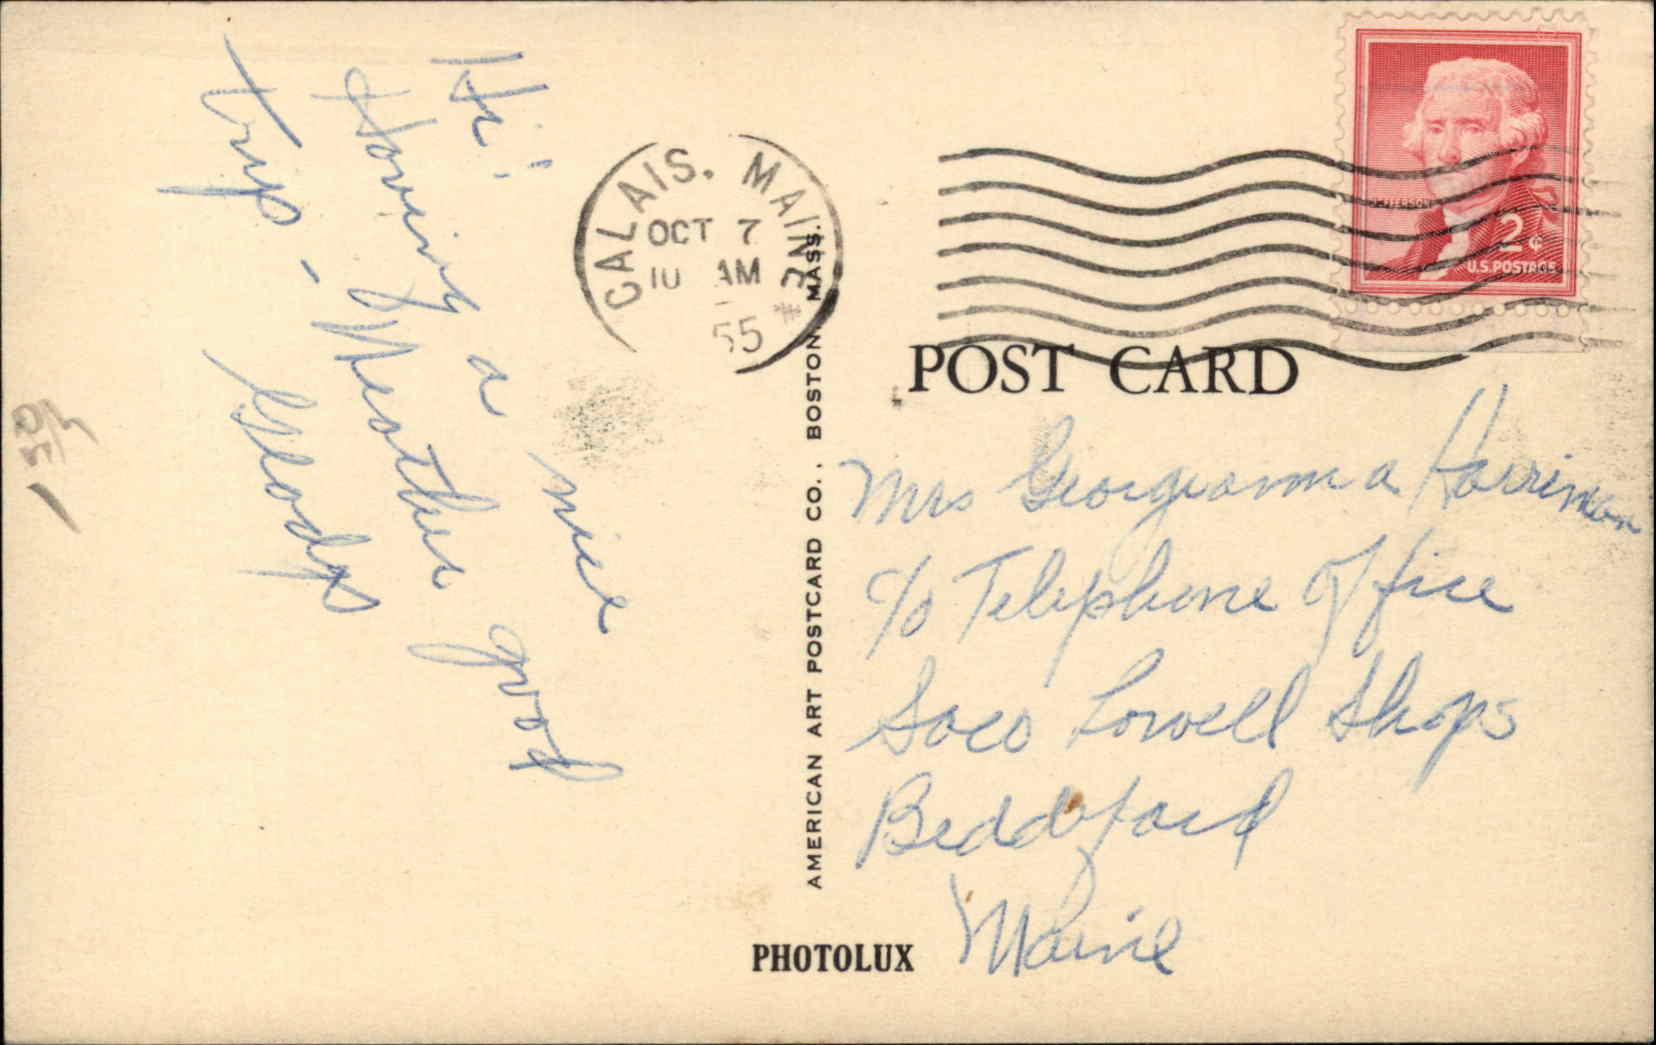 Hi!
Having a nice
trip - Weather good
Gladys
CALAIS, MAINE
OCT 7
10 AM
55
JEFFERSON
2¢
U.S. POSTAGE
POST CARD
AMERICAN ART POSTCARD CO., BOSTON, MASS.
Mrs Georgianna Harriman
c/o Telephone Office
Saco Lowell Shops
Biddeford
Maine
PHOTOLUX